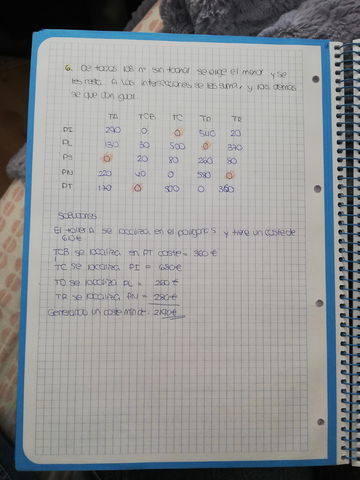 6. De todos los nº sin tachar se elige el menor y se
les resta. A las intersecciones se les suma, y los demás
se quedan igual.
TA TCB TC TD TR
PI 290 0 0 540 20
PL 130 30 500 0 370
PS 0 20 80 260 80
PN 220 40 0 580 0
PT 170 0 500 0 360
Soluciones
El taller A se localiza en el polígono S y tiene un coste de
610€
TCB se localiza en PT coste = 360€
TC se localiza PI = 680€
TD se localiza PL = 260€
TR se localiza PN = 280€
Generando un coste min de 2190€